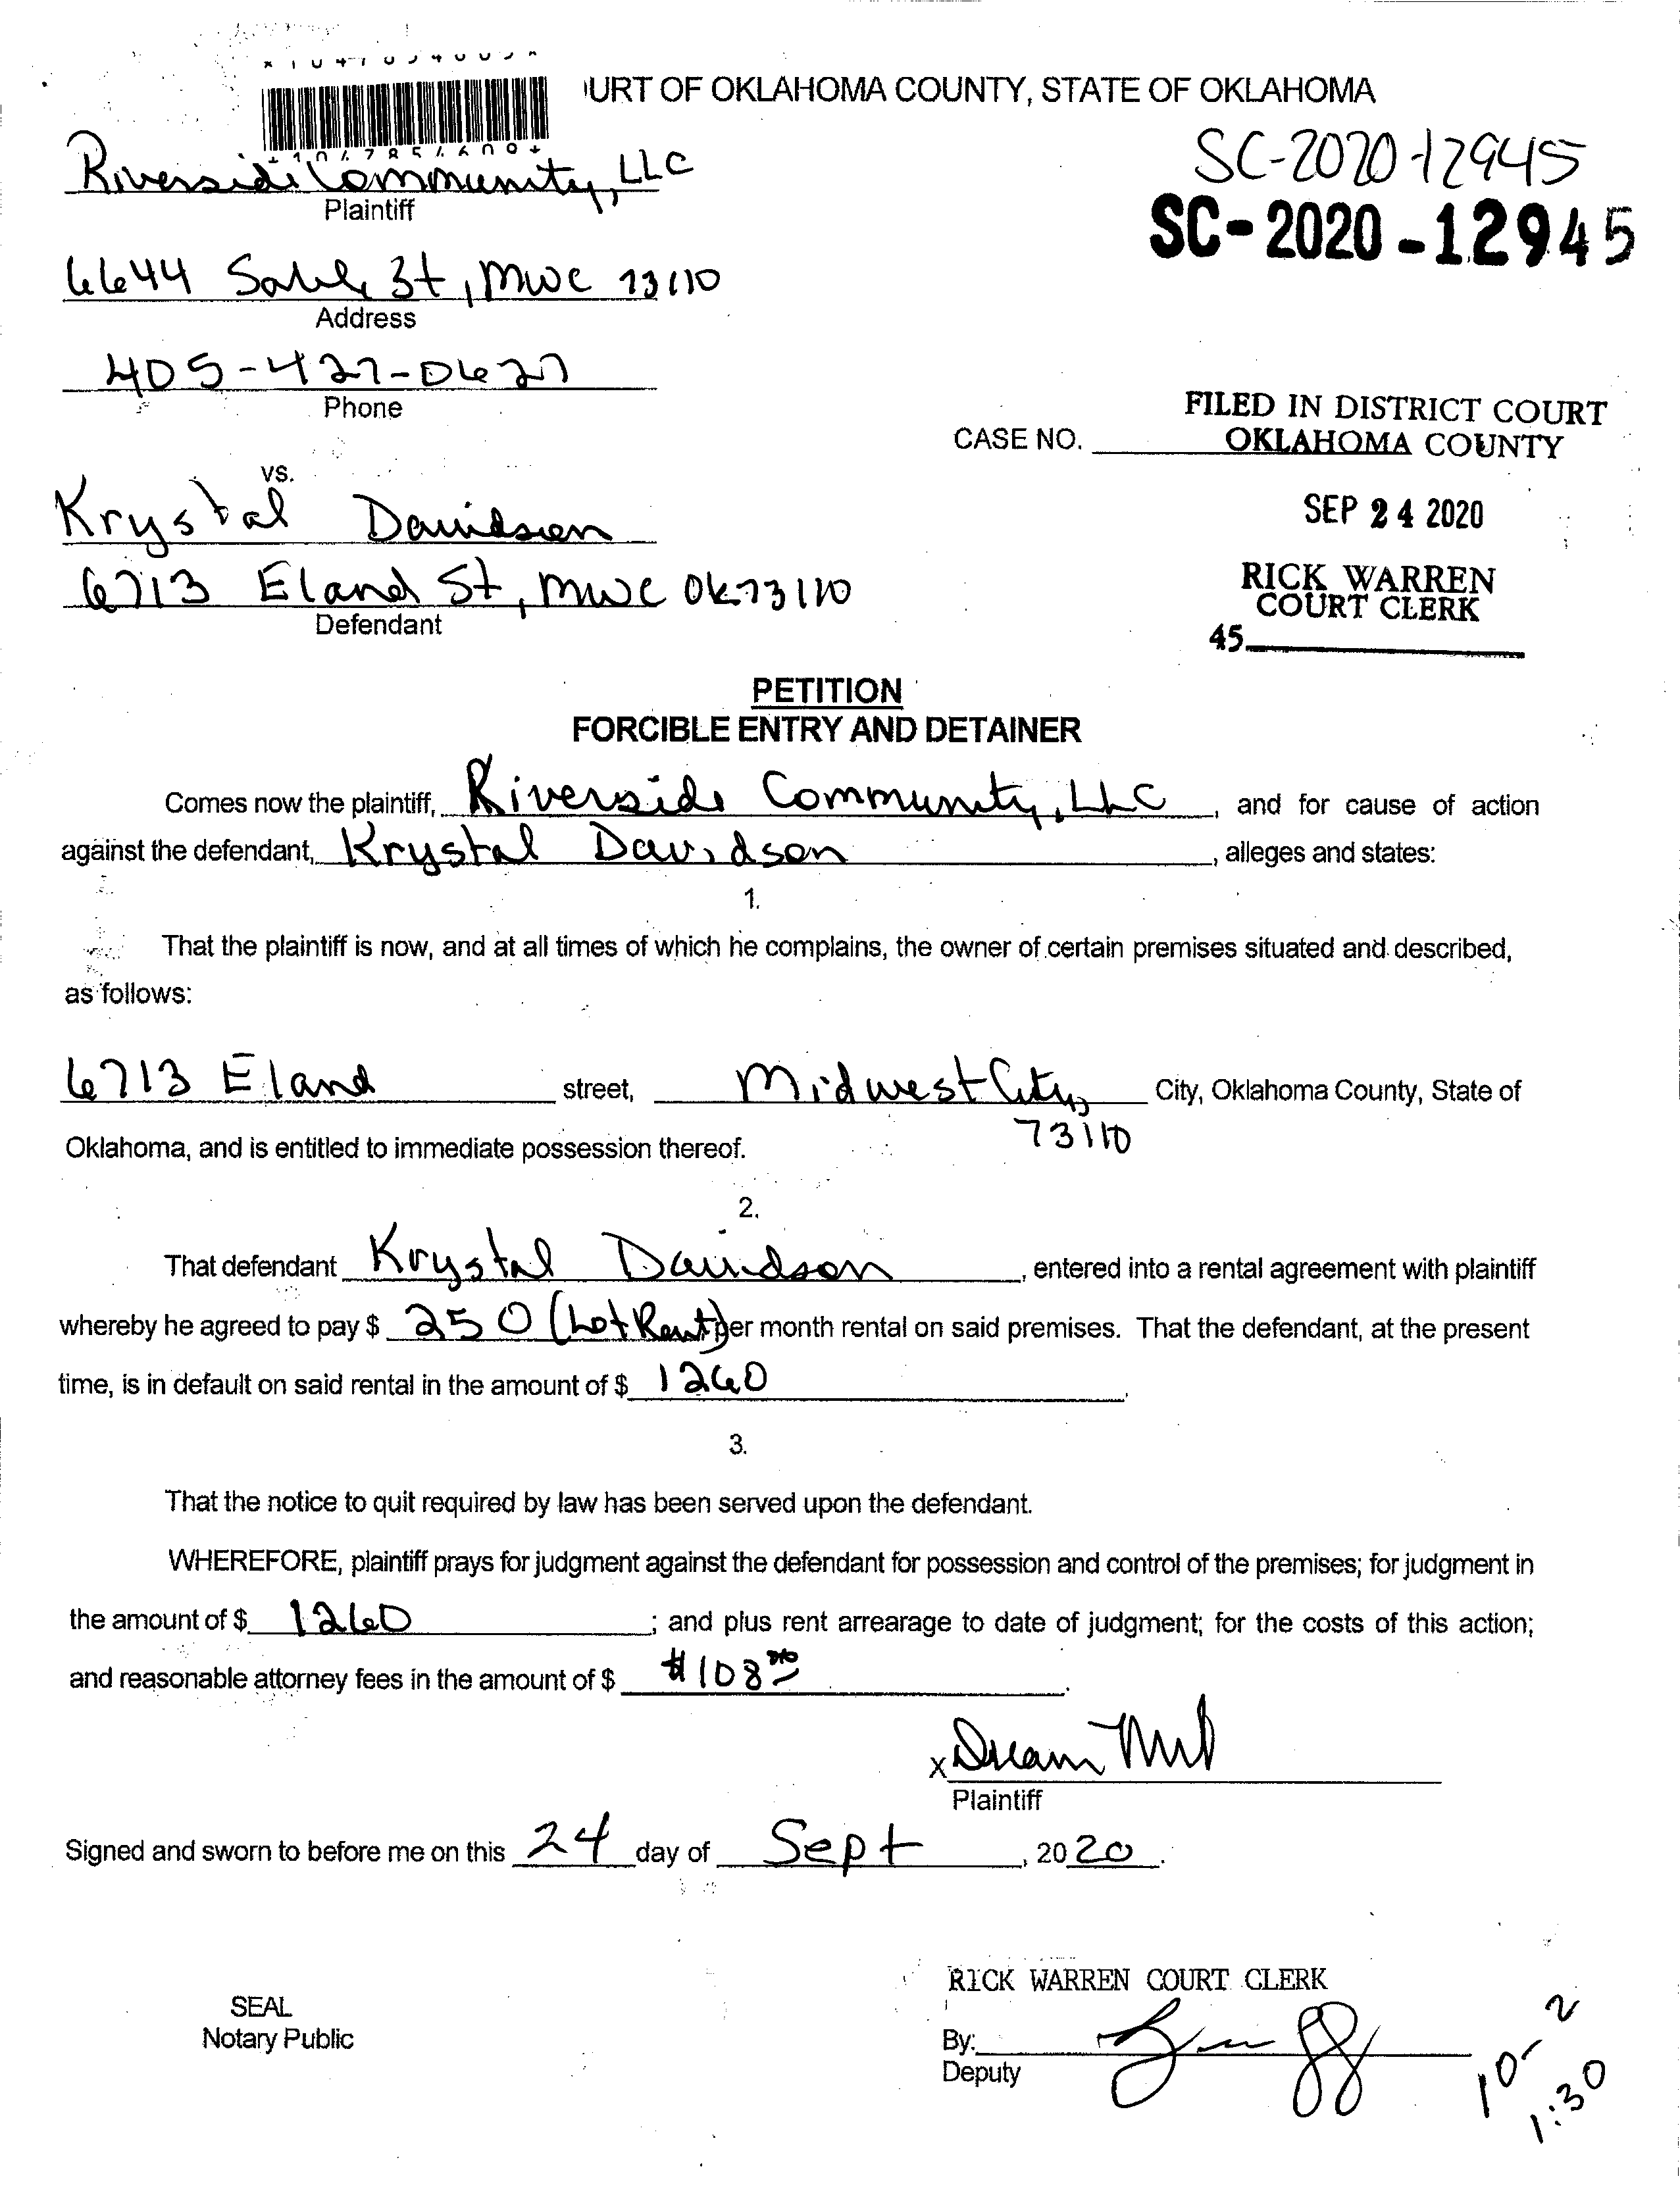 URT OF OKLAHOMA COUNTY, STATE OF OKLAHOMA
Riverside Community, LLC
Plaintiff
SC-2020-12945
SC-2020-12945
6644 Sable St, MWC 73110
Address
405-427-0627
Phone
FILED IN DISTRICT COURT
CASE NO. OKLAHOMA COUNTY
vs.
Krystal Davidson
SEP 24 2020
6713 Eland St, MWC OK 73110
Defendant
RICK WARREN
COURT CLERK
45
PETITION
FORCIBLE ENTRY AND DETAINER
Comes now the plaintiff, Riverside Community, LLC, and for cause of action
against the defendant, Krystal Davidson, alleges and states:
1.
That the plaintiff is now, and at all times of which he complains, the owner of certain premises situated and described,
as follows:
6713 Eland street, Midwest City, City, Oklahoma County, State of
73110
Oklahoma, and is entitled to immediate possession thereof.
2.
That defendant Krystal Davidson, entered into a rental agreement with plaintiff
whereby he agreed to pay $ 250 (Lot Rent) per month rental on said premises. That the defendant, at the present
time, is in default on said rental in the amount of $ 1260.
3.
That the notice to quit required by law has been served upon the defendant.
WHEREFORE, plaintiff prays for judgment against the defendant for possession and control of the premises; for judgment in
the amount of $ 1260; and plus rent arrearage to date of judgment; for the costs of this action;
and reasonable attorney fees in the amount of $ $108.
x
Plaintiff
Signed and sworn to before me on this 24 day of Sept, 2020.
RICK WARREN COURT CLERK
SEAL
Notary Public
By:
Deputy
10-2
1:30